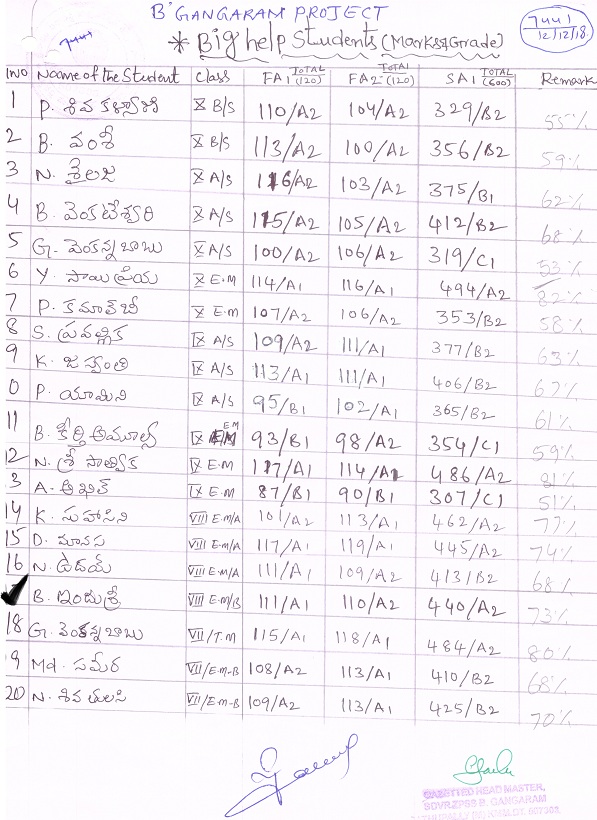 B' GANGARAM PROJECT
7441
* Big help Students (Marks & Grade)
7441
12/12/18
SNO Name of the Student Class FA1 TOTAL (120) FA2 TOTAL (120) SA1 TOTAL (600) Remark
1 P. శివ కళ్యాణి X B/S 110/A2 104/A2 329/B2 55%
2 B. వంశీ X B/S 113/A2 100/A2 356/B2 59%
3 N. శైలజ X A/S 116/A2 103/A2 375/B1 62%
4 B. వెంకటేశ్వరి X A/S 115/A2 105/A2 412/B2 68%
5 G. వెంకన్న బాబు X A/S 100/A2 106/A2 319/C1 53%
6 Y. సాయి ప్రియ X E.M 114/A1 116/A1 494/A2 82%
7 P. కమాల్ బీ X E.M 107/A2 106/A2 353/B2 58%
8 S. ప్రవల్లిక IX A/S 109/A2 111/A1 377/B2 63%
9 K. జస్వంతి IX A/S 113/A1 111/A1 406/B2 67%
0 P. యామిని IX A/S 95/B1 102/A1 365/B2 61%
11 B. కీర్తి అమూల్య IX E/M EM 93/B1 98/A2 354/C1 59%
12 N. శ్రీ సాత్విక IX E.M 117/A1 114/A1 486/A2 81%
3 A. అఖిల్ IX E.M 87/B1 90/B1 307/C1 51%
14 K. సుహాసిని VIII E.M/A 101/A2 113/A1 462/A2 77%
15 D. మానస VIII E.M/A 117/A1 119/A1 445/A2 74%
16 N. ఉదయ్ VIII E.M/A 111/A1 109/A2 413/B2 68%
B. ఇందుశ్రీ VIII E.M/B 111/A1 110/A2 440/A2 73%
18 G. వెంకన్నబాబు VII/T.M 115/A1 118/A1 484/A2 80%
9 Md. సమీర VII/E.M-B 108/A2 113/A1 410/B2 68%
20 N. శివ తులసి VII/E.M-B 109/A2 113/A1 425/B2 70%
GAZETTED HEAD MASTER,
B. GANGARAM